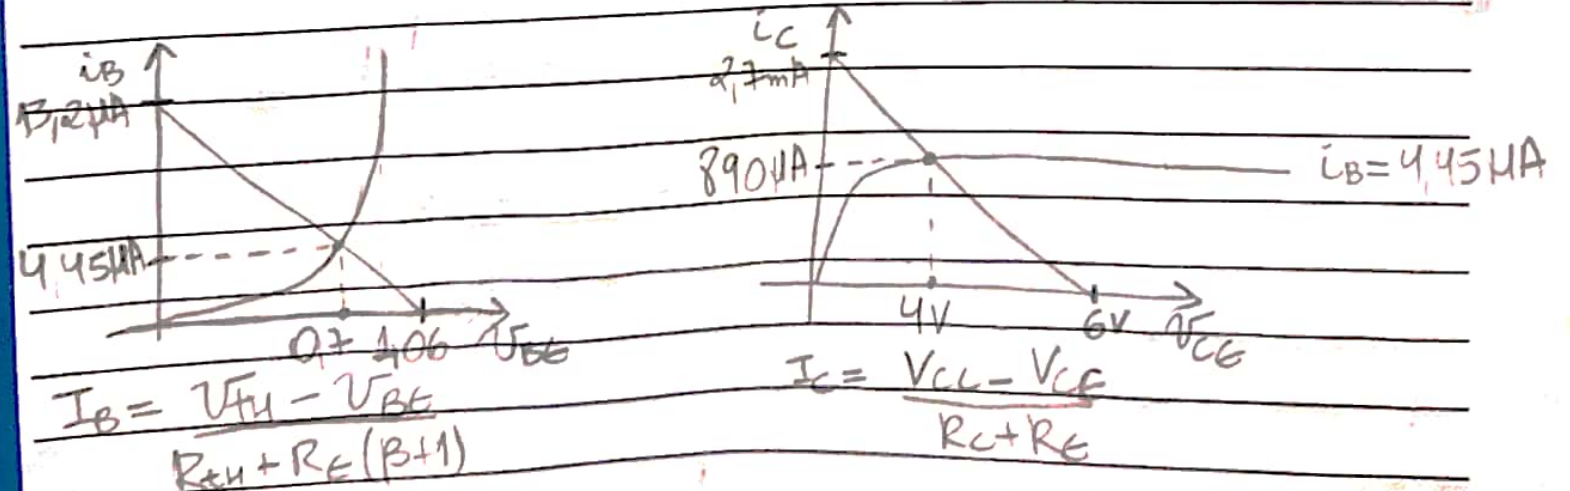 iB
13,2µA
4,45µA
0,7 1,06 VBE
IB = VTH - VBE
RTH + RE (β+1)
iC
2,7mA
890µA
iB = 4,45µA
4V 6V VCE
IC = VCC - VCE
RC + RE